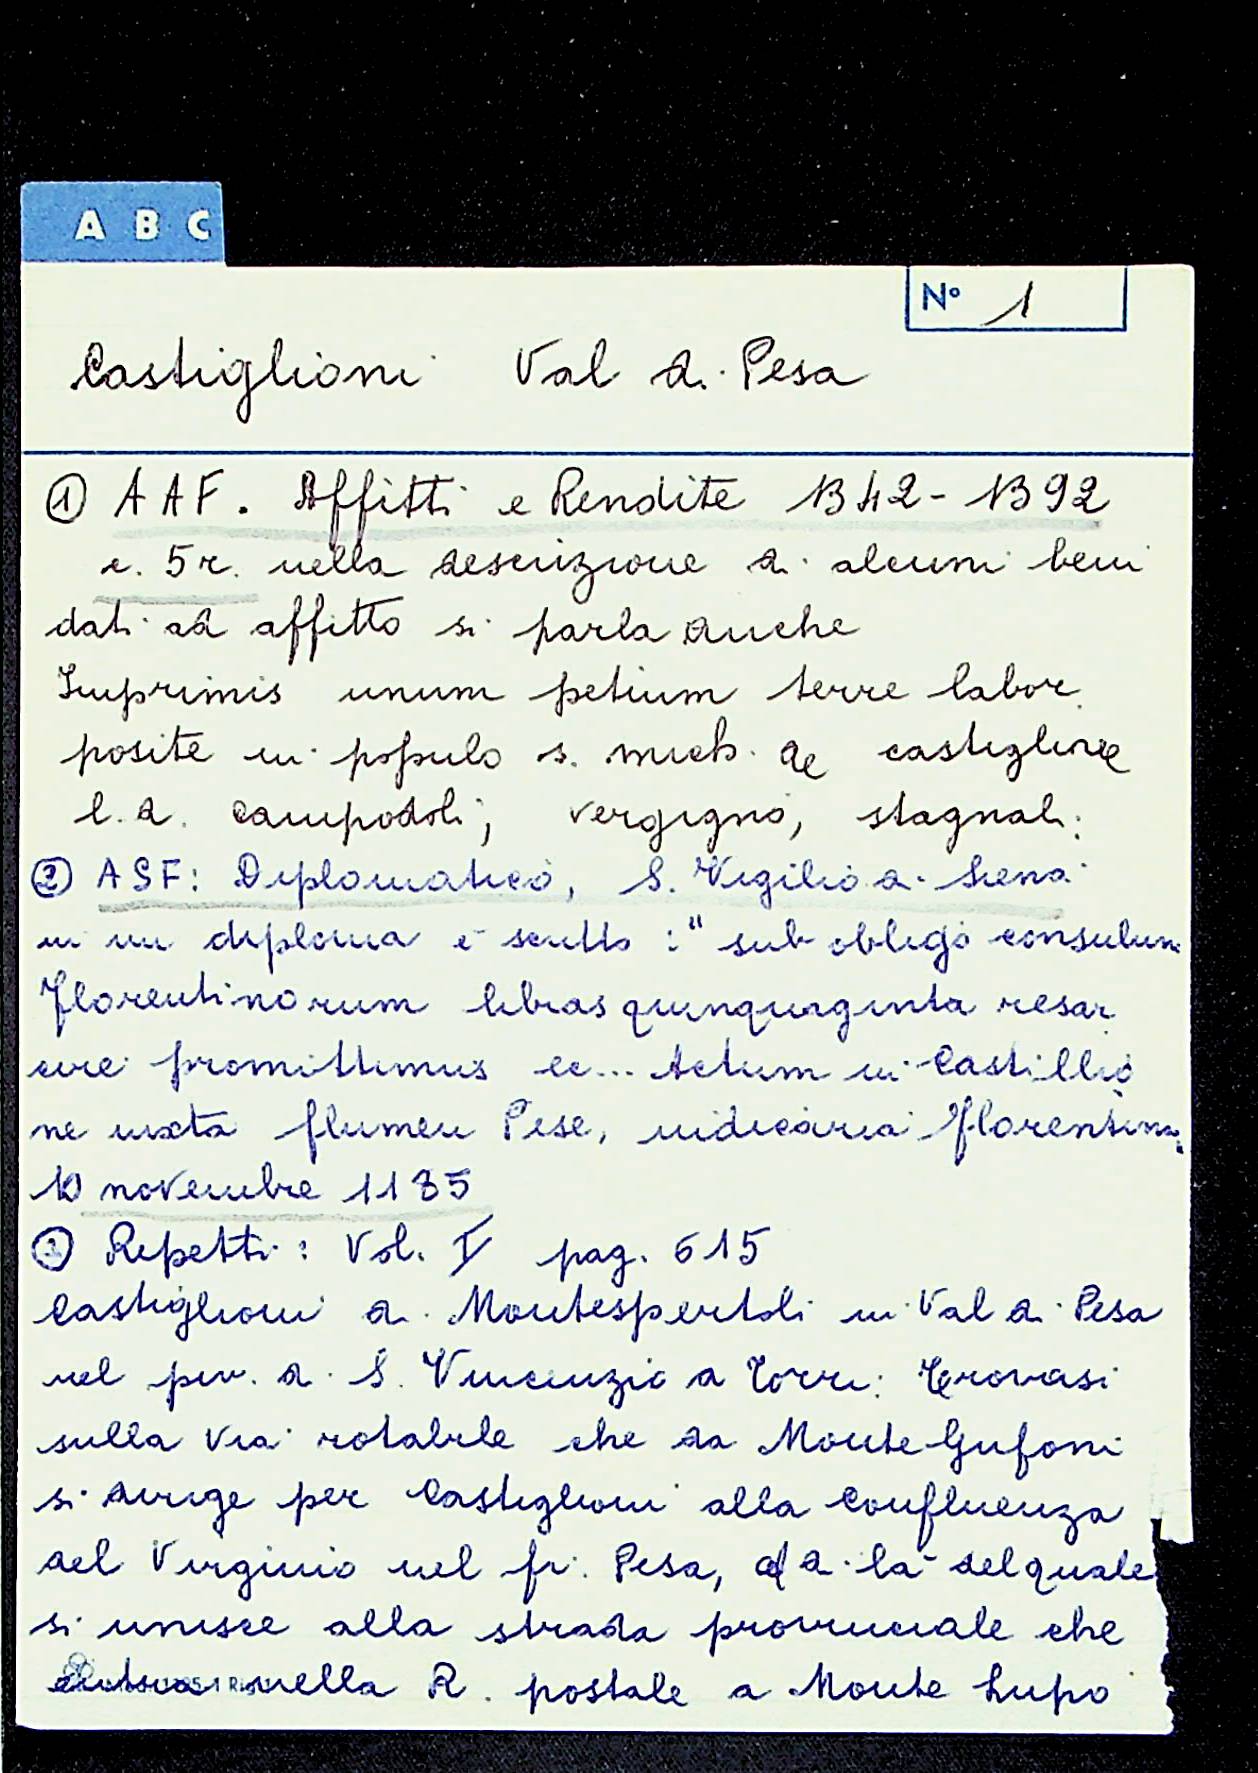 A B C
N° 1
Castiglioni Val di Pesa
① AAF. Affitti e Rendite 1342-1392
c. 5r. nella descrizione di alcuni beni
dati ad affitto si parla anche
Imprimis unum petium terre labor.
posite in populo s. mich. de castiglione
l.d. campodoli, vergigno, stagnali.
② ASF: Diplomatico, S. Vigilio di Siena
in un diploma è scritto: "sub obligo consulum
florentinorum libras quinquaginta resar
cire promittimus ec... Actum in Castillio
ne iuxta flumen Pese, iudicaria florentina.
10 novembre 1185
③ Repetti: Vol. V pag. 615
Castiglioni di Montespertoli in Val di Pesa
nel piv. di S. Vincenzio a Torri: Trovasi
sulla via rotabile che da Monte Gufoni
si dirige per Castiglioni alla confluenza
del Virginio nel fi. Pesa, di là del quale
si unisce alla strada provinciale che
entra nella R. postale a Monte Lupo